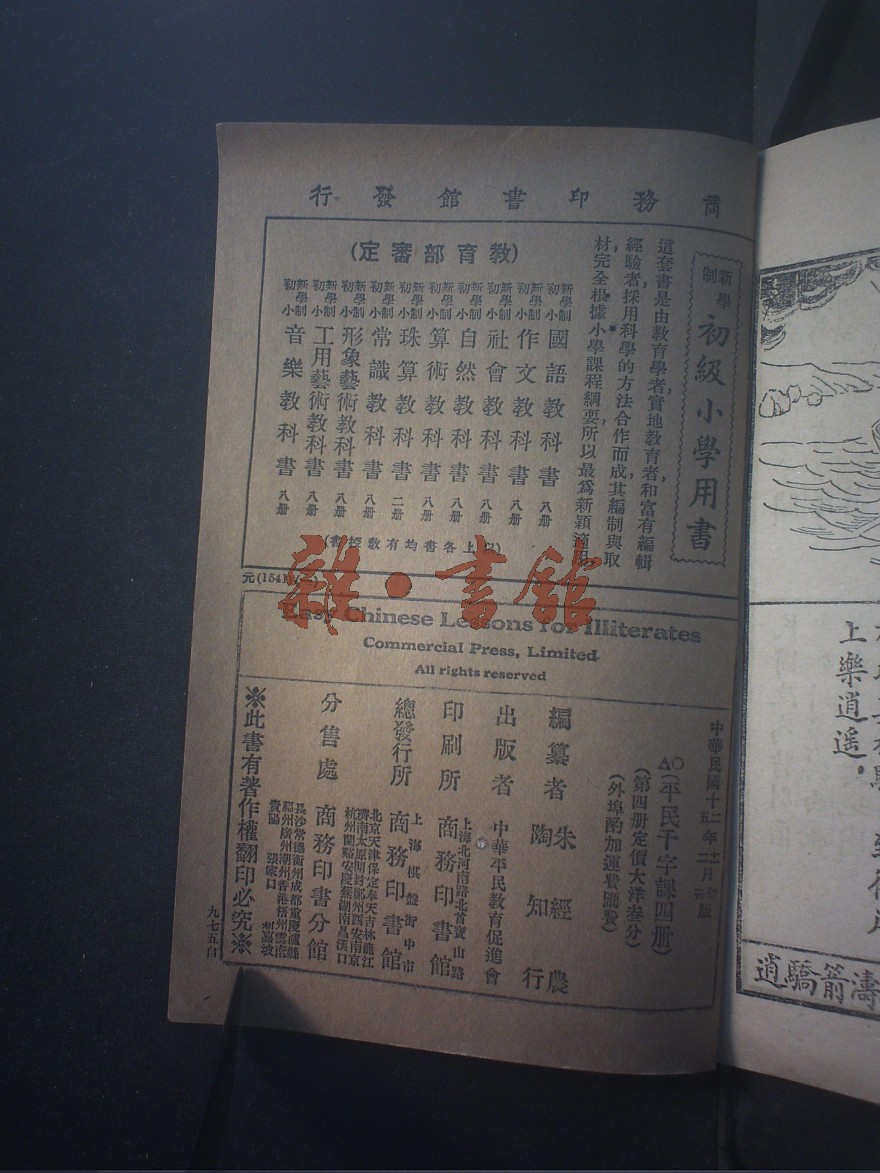 商務印書館發行
新學制
初級小學用書
這套書是由教育學者，實地教育者，和富有編輯
經驗者，採用科學的方法合作而成，其編制與取
材，完全根據小學課程綱要，所以最爲新穎適用
(教育部審定)
新學制初小 國語教科書 八册
新學制初小 作文教科書 八册
新學制初小 社會教科書 八册
新學制初小 自然教科書 八册
新學制初小 算術教科書 八册
新學制初小 珠算教科書 二册
新學制初小 常識教科書 八册
新學制初小 形象藝術教科書 八册
新學制初小 工用藝術教科書 八册
新學制初小 音樂教科書 八册
(以上各書均有教授書)
雜·書館
Easy Chinese Lessons for Illiterates
Commercial Press, Limited
All rights reserved
△○(平民千字課四册)
(第四册定價大洋叁分)
(外埠酌加運費匯費)
編纂者 朱經農
陶知行
出版者 中華平民教育促進會
印刷所 上海北河南路北首寶山路
商務印書館
總發行所 上海棋盤街中市
商務印書館
分售處 商務印書分館
北京天津保定奉天吉林龍江
濟南太原開封鄭州西安南京
杭州蘭谿安慶蕪湖南昌漢口
長沙常德衡州成都重慶瀘縣
福州廣州潮州香港梧州雲南
貴陽 張家口
※此書有著作權翻印必究※
九七五自
上樂逍遥。
濤箭驕逍